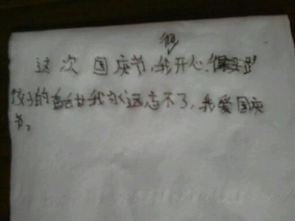 这次国庆节,我很开心,
孩子的 我永远忘不了,我爱国庆
节。